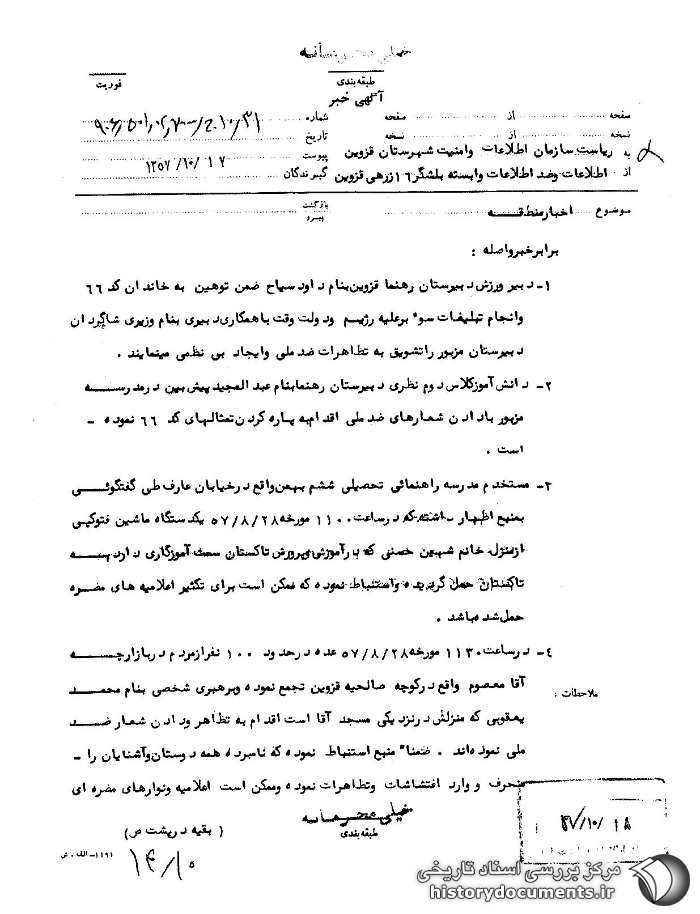 خیلی محرمانه
طبقه‌بندی
فوریت
آگهی خبر
صفحه از صفحه شماره ۹۰۶/۵۰۱
نسخه از نسخه تاریخ
به ریاست سازمان اطلاعات وامنیت شهرستان قزوین پیوست ۱۳۵۷/۱۰/۱۲
از اطلاعات وضد اطلاعات وابسته بلشگر ۱۶ زرهی قزوین گیرندگان
موضوع اخبارمنطقه بازگشت پیرو
برابرخبرواصله :
۱- دبیر ورزش دبیرستان رهنما قزوین‌بنام داود سیاح ضمن توهین به خاندان کد ۶۶
وانجام تبلیغات سوء برعلیه رژیم ودولت وقت باهمکاری‌دبیری بنام وزیری شاگردان
دبیرستان مزبور راتشویق به تظاهرات ضد ملی وایجاد بی نظمی مینمایند .
۲- دانش آموزکلاس دوم نظری دبیرستان رهنمابنام عبد المجید پیش بین درمدرسه
مزبور بادادن شعارهای ضد ملی اقدام‌به پاره کردن‌تمثالهای کد ۶۶ نموده -
است .
۳- مستخدم مدرسه راهنمائی تحصیلی ششم بهمن‌واقع درخیابان عارف طی گفتگوئی
بمنبع اظهار داشته‌که درساعت ۱۱۰۰ مورخه ۵۷/۸/۲۸ یکدستگاه ماشین فتوکپی
ازمنزل خانم شهین حصنی که با آموزش وپرورش تاکستان سمت آموزگاری دارد به
تاکستان حمل گردیده واستنباط نموده که ممکن است برای تکثیر اعلامیه های مضره
حمل‌شده باشد .
۴- درساعت ۱۱۳۰ مورخه ۵۷/۸/۲۸ عده درحدود ۱۰۰ نفرازمردم دربازارچه
آقا معصوم واقع درکوچه صالحیه قزوین تجمع نموده وبرهبری شخصی بنام محمد
ملاحظات :
یعقوبی که منزلش درنزدیکی مسجد آقا است اقدام به تظاهر ودادن شعار ضد
ملی نموده‌اند . ضمناً منبع استنباط نموده که نامبرده همه دوستان‌وآشنایان را -
منحرف و وارد اغتشاشات وتظاهرات نموده وممکن است اعلامیه ونوارهای مضره ای
خیلی محرمانه
طبقه‌بندی
( بقیه درپشت ص )
۵۷/۱۰/۱۸
۱۴/۱۰
مرکز بررسی اسناد تاریخی
historydocuments.ir